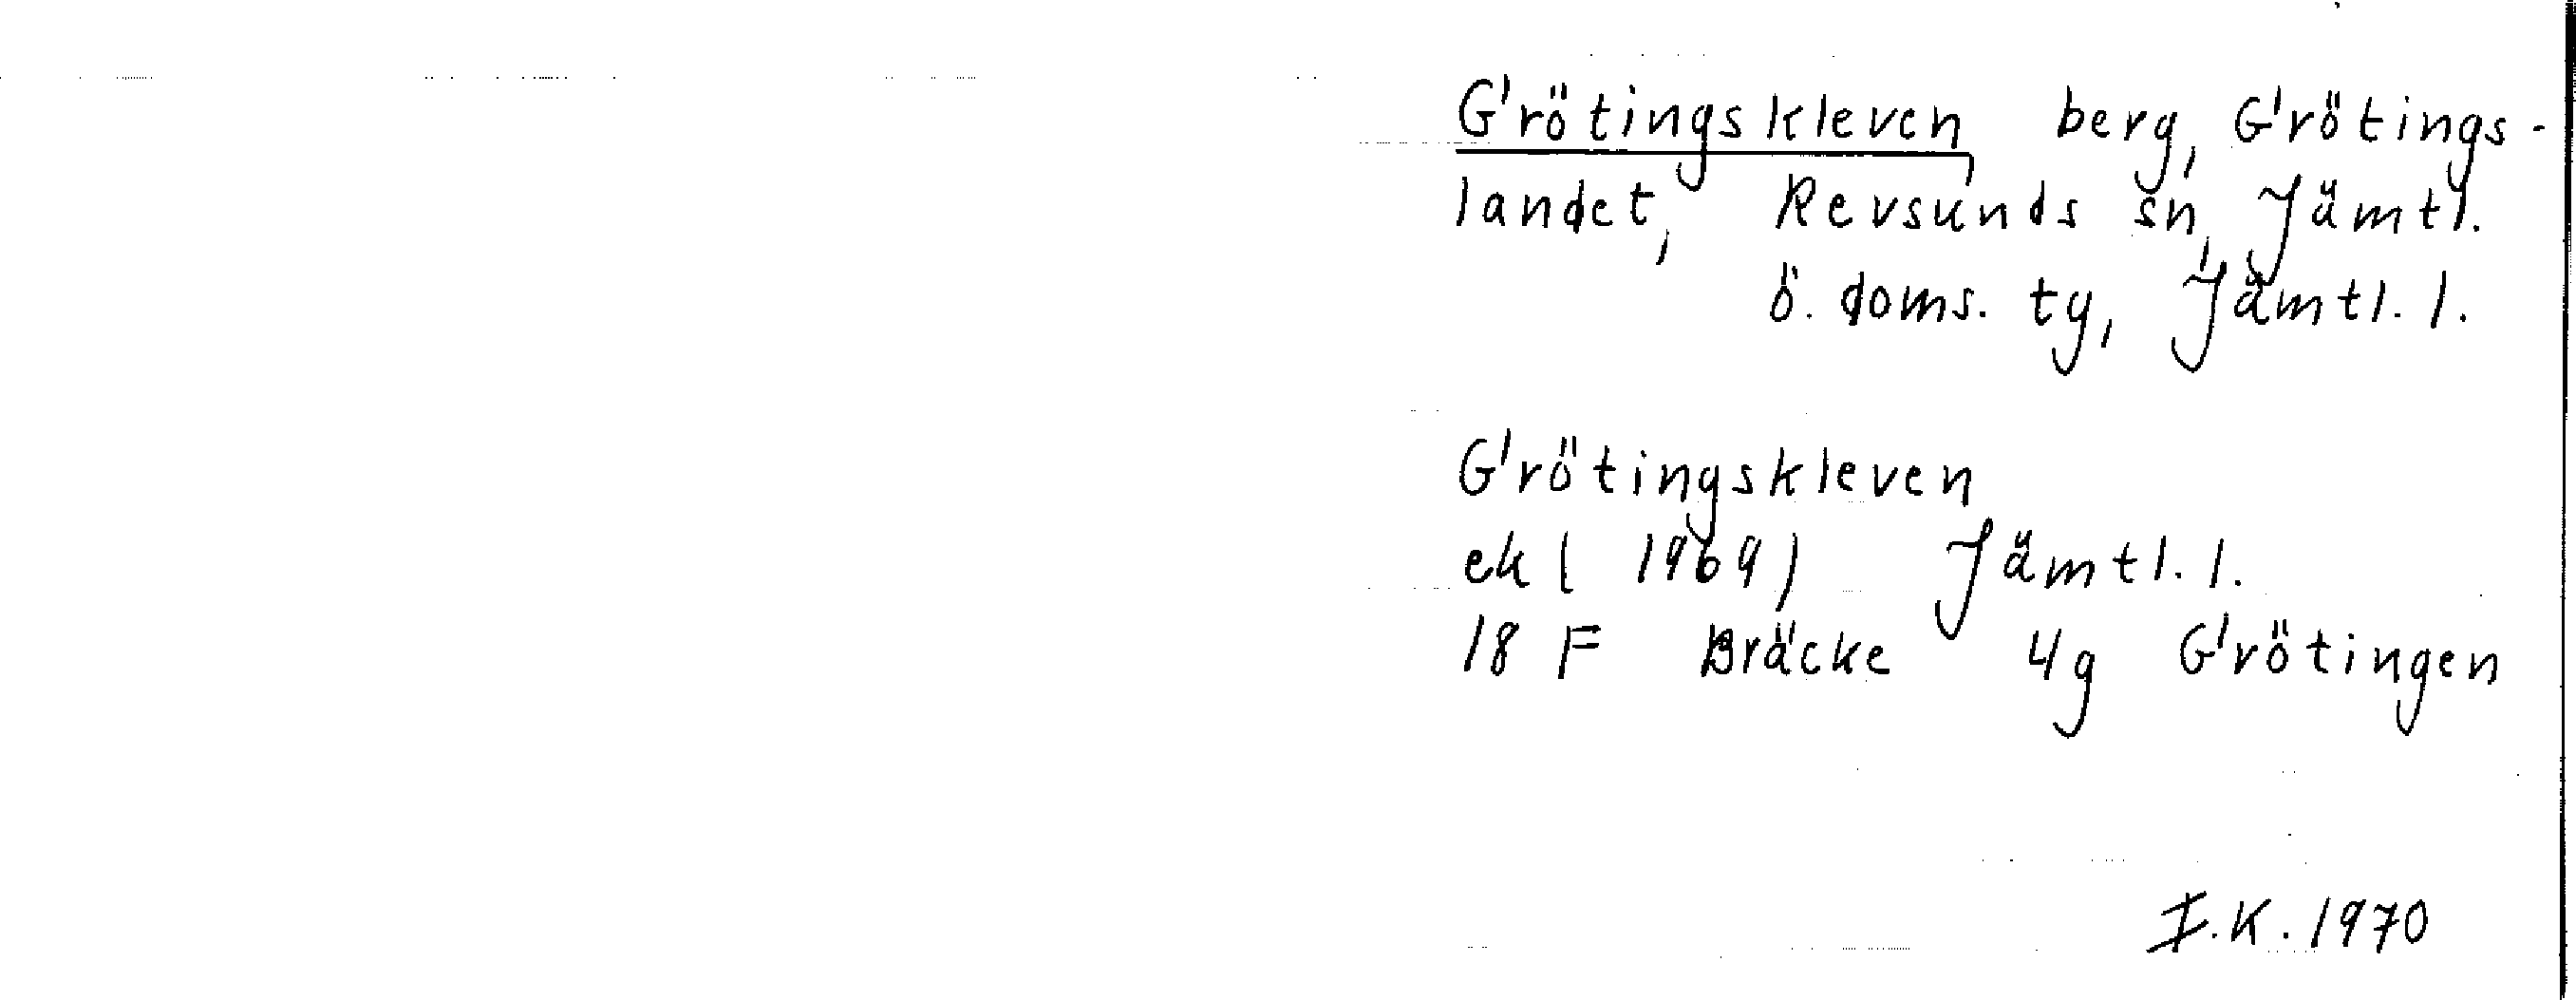 Grötingskleven, berg, Grötings-
landet, Revsunds sn, Jämtl.
ö. doms. tg, Jämtl. l.
Grötingskleven
ek ( 1969) Jämtl. l.
18 F Bräcke 4g Grötingen
I.K. 1970